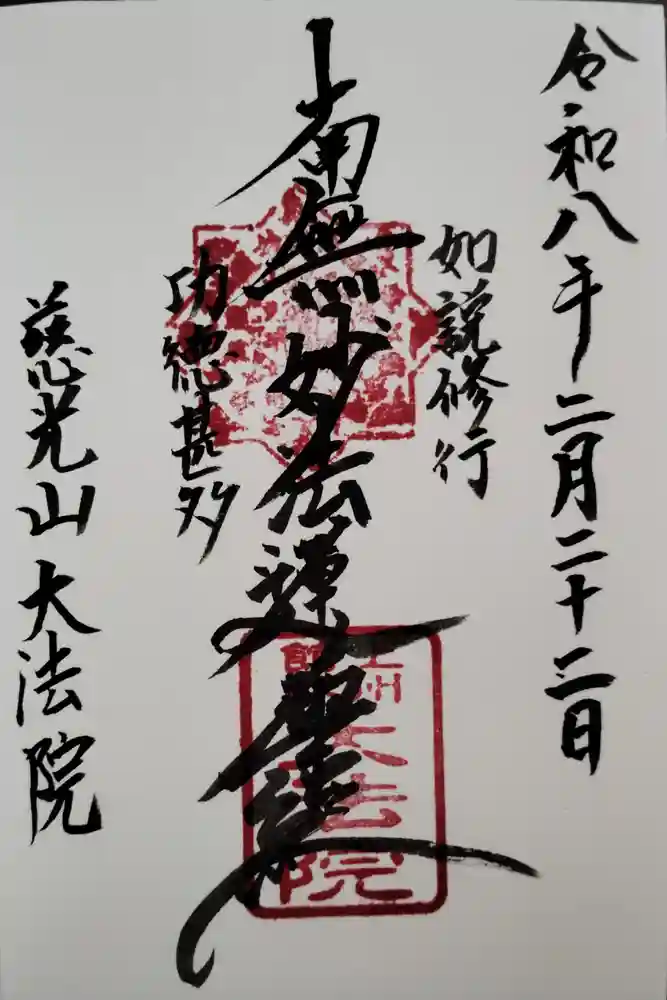 令和八年二月二十二日
如説修行
南無妙法蓮華経
功徳甚多
慈光山大法院
上州
大法院